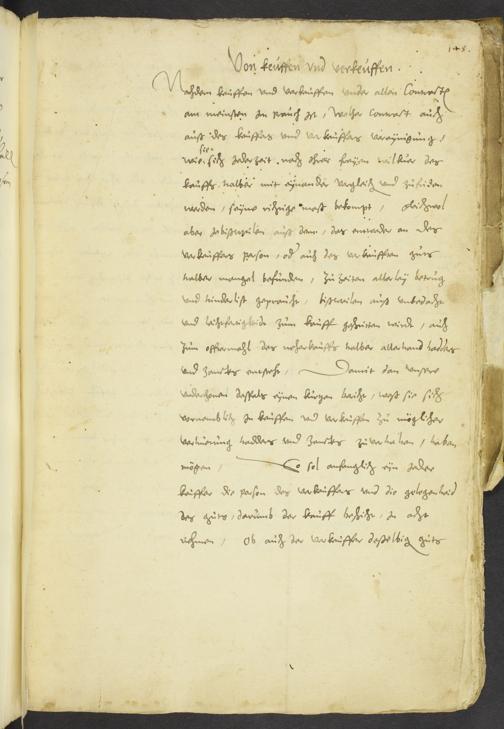 148.
Von keuffen vnd verkeuffen.
Nachdem keuffen vnd verkeuffen vnder allen Contract
am meinsten in prauch ist, welcher Contract auch
auß des keuffers vnd verkeuffers vereynigung,
wie sie sich jederzeit nach ihrer freyen wilkür des
kauffs halber mit eynander vergleich vnd zufriden
werden, seyne richtige maß bekompt, gleichwol
aber zubißweilen auß dem, das entweder an des
verkeuffers person, oder auch des verkaufften guts
halber mangel befunden, zu zeiten allerley betrug
vnd hinderlist gepraucht, bißweilen auß vnbedacht
vnd leichtfertigkeit zum kauff geschritten wirdt, auch
zum offtermahl des vorkauffs halber allerhand hadder
vnd zancks entsteht, Damit dan vnsere
vnderthanen deßfals eynen kurtzen bericht, weß sie sich
vornemblich in keuffen vnd verkeuffen zu möglicher
verhuetung hadders vnd zancks zuverhalten, haben
mögen, So sol anfenglich ein jeder
keuffer die person des verkeuffers vnd die gelegenheid
des guts, darumb der kauff beschicht, in acht
nehmen, Ob auch der verkeuffer desselbig guts